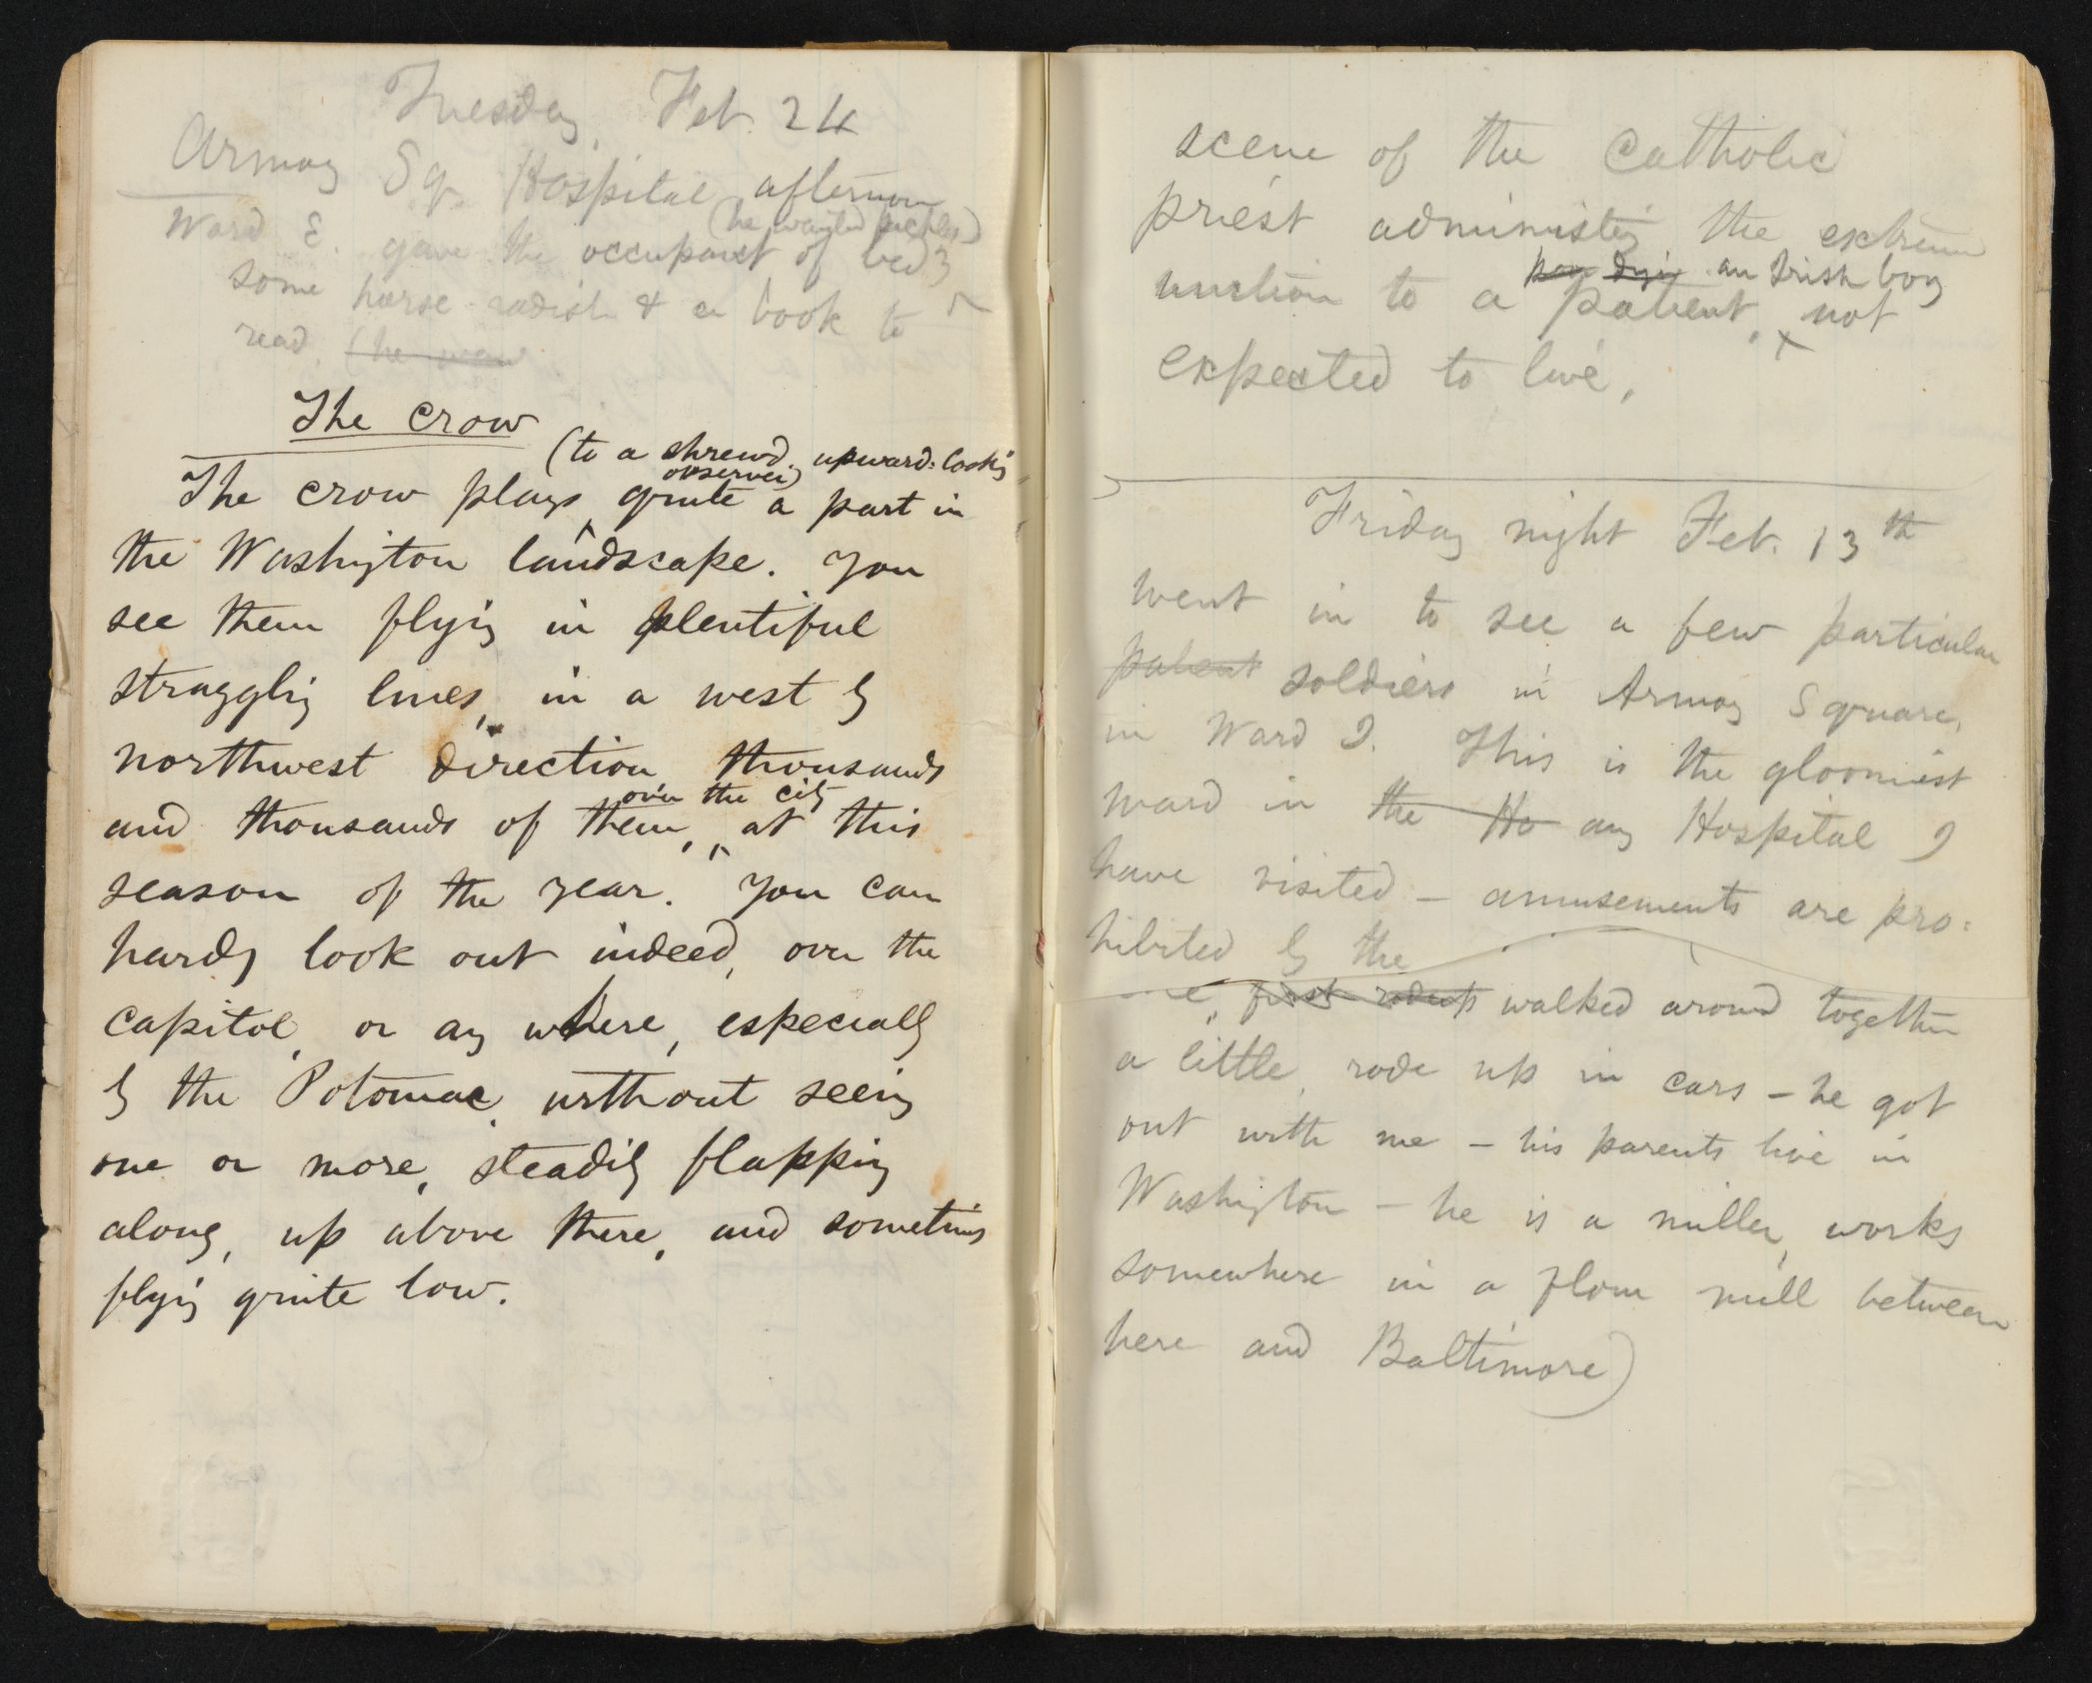 Tuesday, Feb. 24
Armory Sq. Hospital afternoon
(he wanted pickles)
Ward E. gave the occupant of bed 3
some horse-radish & a book to
read. (he wan
The Crow
(to a shrewd, upward-looking
observer)
The crow plays quite a part in
the Washington landscape. You
see them flying in plentiful
straggling lines, in a west by
northwest direction, thousands
over the city
and thousands of them, at this
season of the year. You can
hardly look out indeed, over the
Capitol, or any where, especially
by the Potomac, without seeing
one or more, steadily flapping
along, up above there, and sometimes
flying quite low.
scene of the Catholic
priest administering the extreme
poor dying an Irish boy
unction to a patient, not
expected to live,
Friday night Feb. 13th
went in to see a few particular
patient soldiers in Armory Square,
in Ward I. This is the gloomiest
ward in the Ho any Hospital I
have visited – amusements are pro-
hibited by the
first walked around together
a little, rode up in cars – he got
out with me – his parents live in
Washington – he is a miller, works
somewhere in a flour mill between
here and Baltimore)